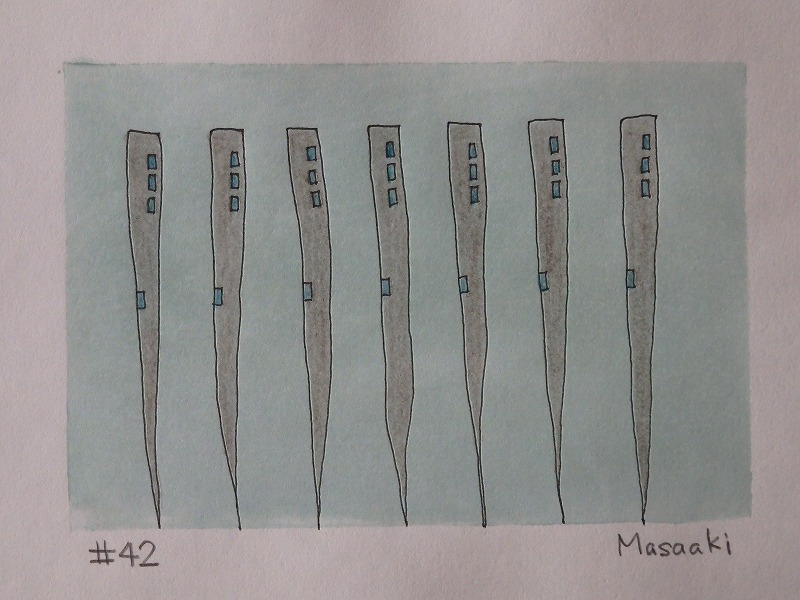 #42
Masaaki